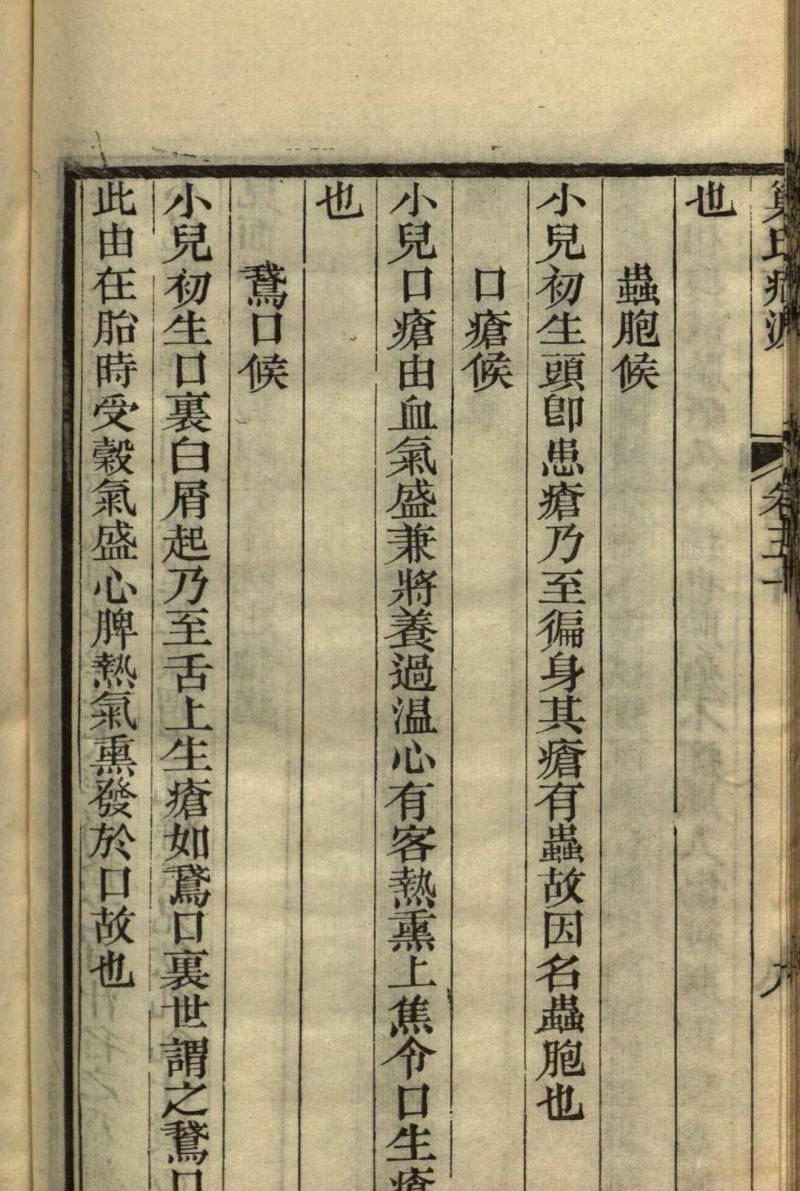 巢氏病源 卷五十 九
也
蟲胞候
小兒初生頭卽患瘡乃至徧身其瘡有蟲故因名蟲胞也
口瘡候
小兒口瘡由血氣盛兼將養過温心有客熱熏上焦令口生瘡
也
鵞口候
小兒初生口裏白屑起乃至舌上生瘡如鵞口裏世謂之鵞口
此由在胎時受穀氣盛心脾熱氣熏發於口故也